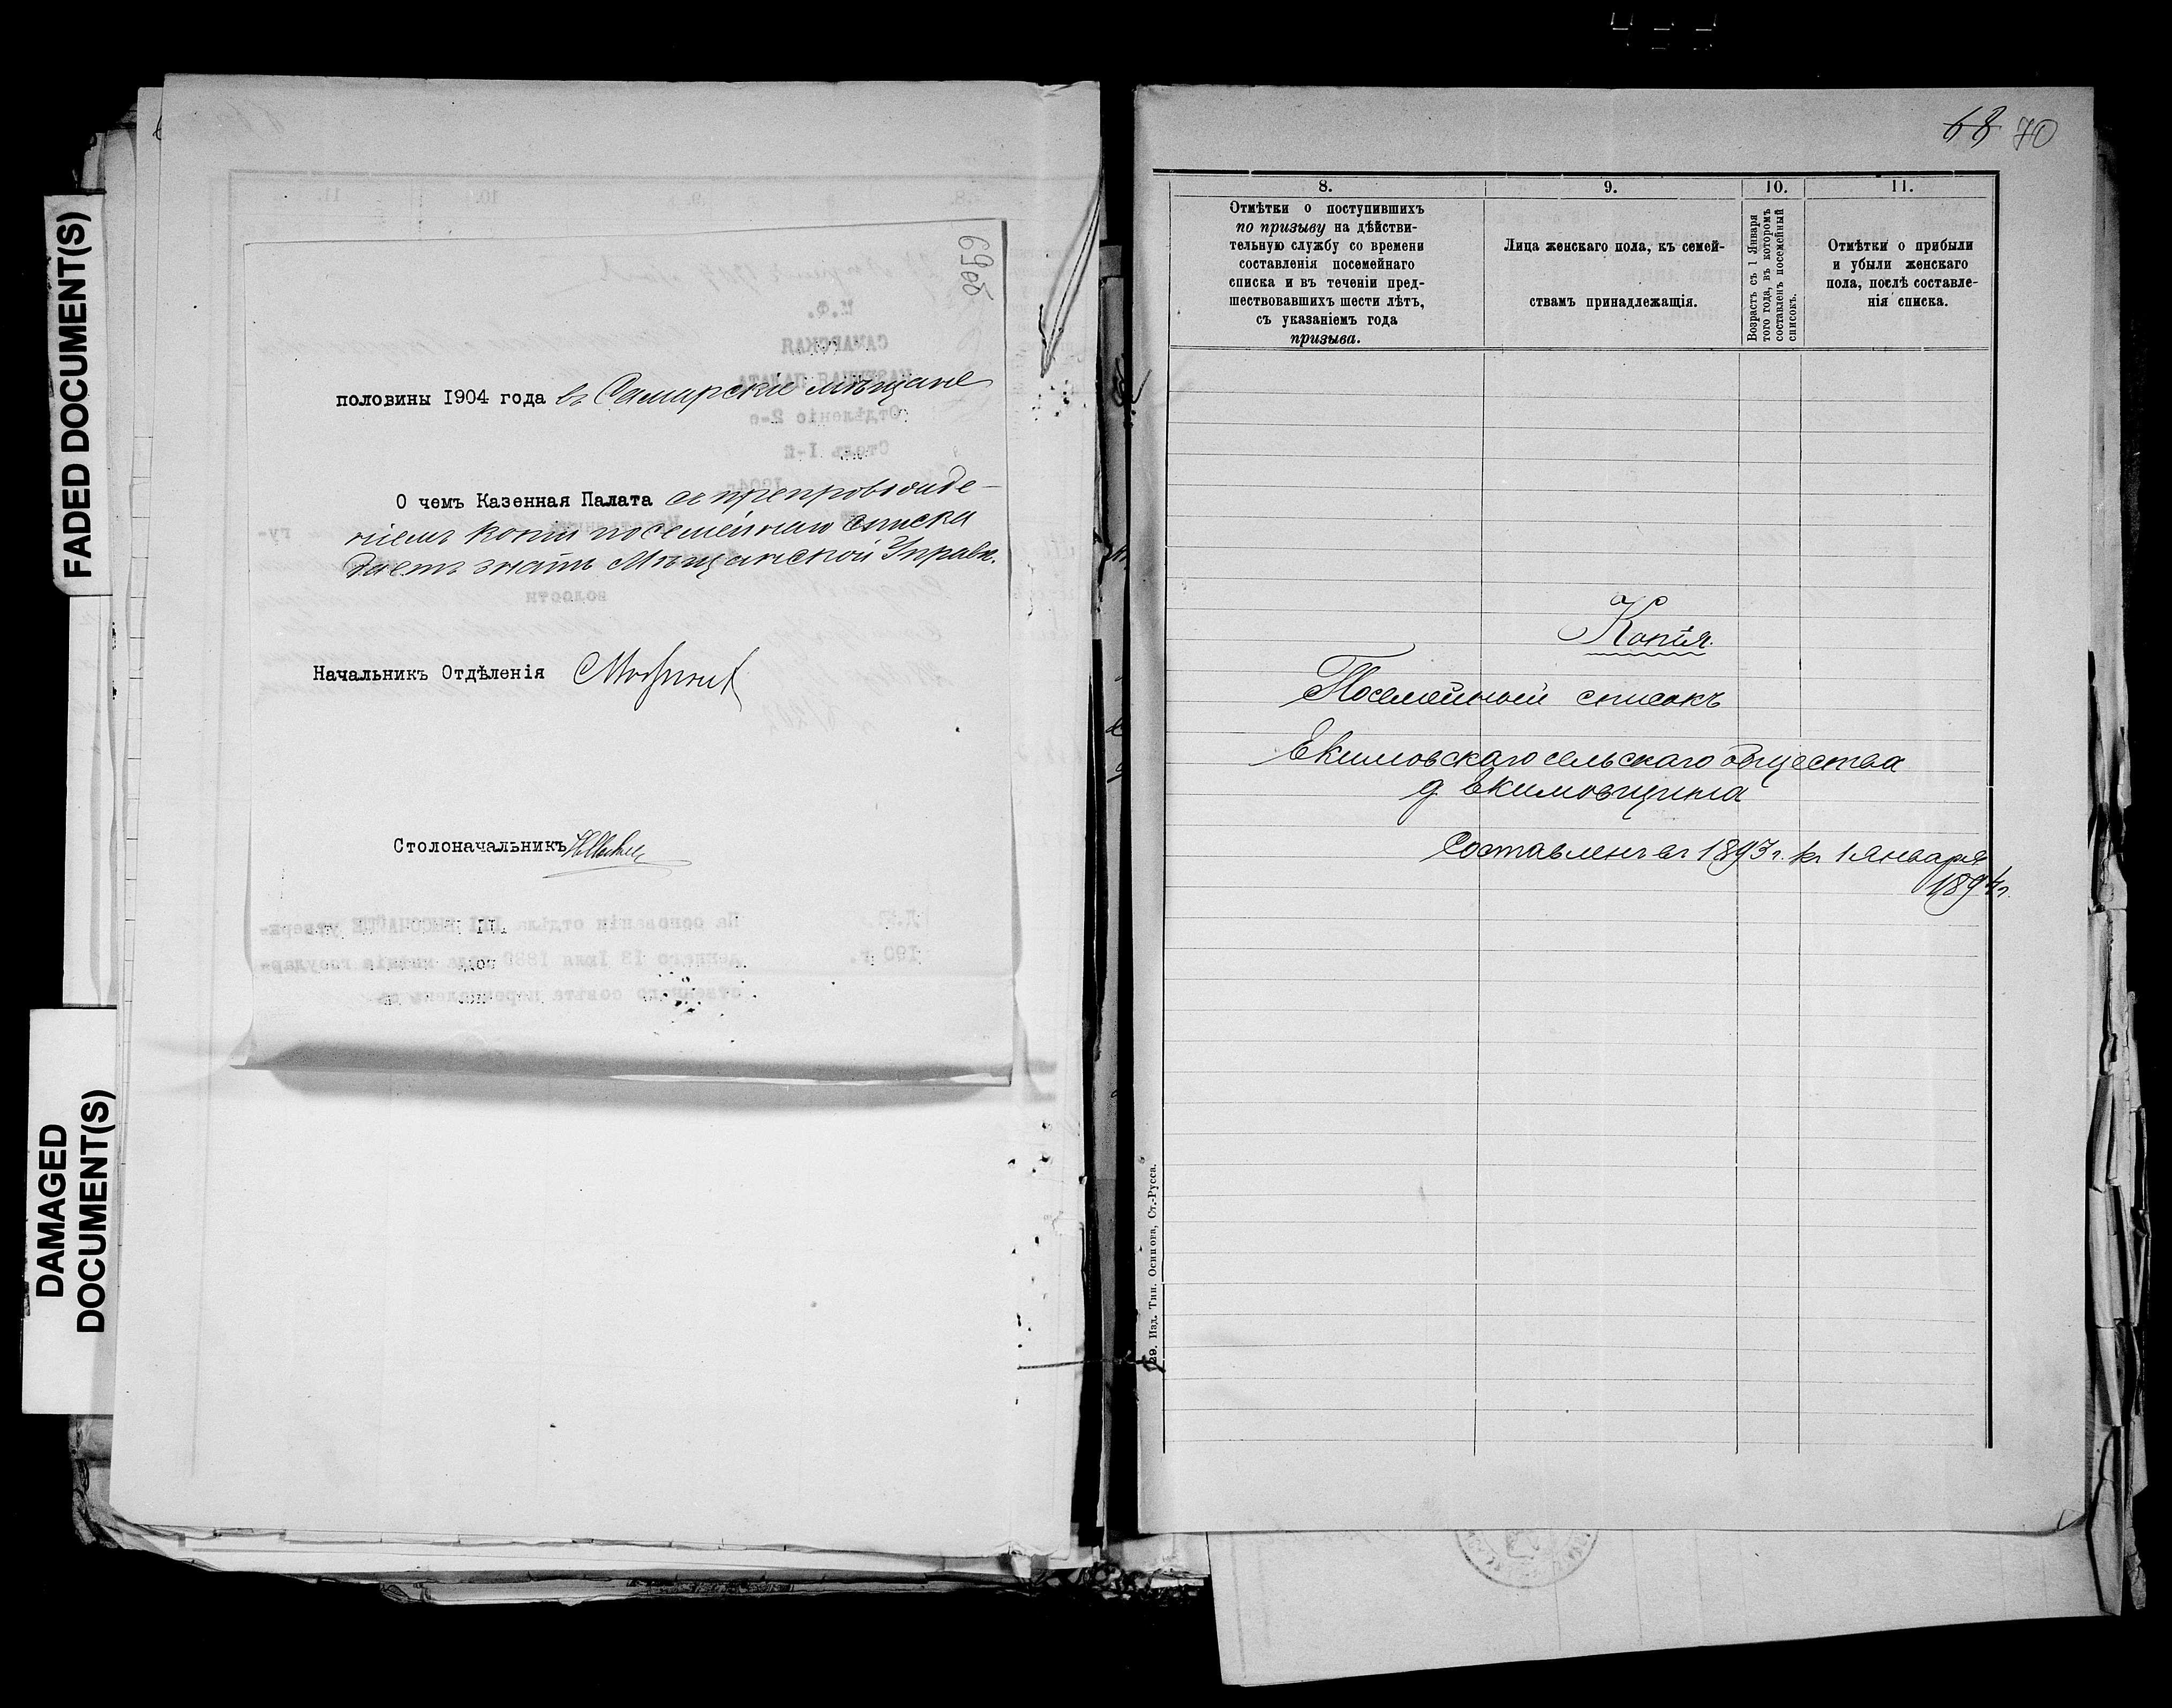 FADED DOCUMENT(S)
DAMAGED
DOCUMENT(S)
69об
половины 1904 года въ Самарскіе мѣщане
О чемъ Казенная Палата съ препровожде-
ніемъ копіи посемейнаго списка
даетъ знать Мѣщанской Управѣ.
Начальникъ Отдѣленія
Столоначальникъ
68 70
8.
Отмѣтки о поступившихъ
по призыву на дѣйстви-
тельную службу со времени
составленія посемейнаго
списка и въ теченіи пред-
шествовавшихъ шести лѣтъ,
съ указаніемъ года
призыва.
9.
Лица женскаго пола, къ семей-
ствамъ принадлежащія.
10.
Возрастъ съ 1 Января
того года, въ которомъ
составленъ посемейный
списокъ.
11.
Отмѣтки о прибыли
и убыли женскаго
пола, послѣ составле-
нія списка.
Копія.
Посемейный списокъ
Екимовскаго сельскаго общества
д Екимовщина
Составленъ въ 1893 г. къ 1 Января
1894 г.
29. Изд. Тип. Осипова, Ст.-Русса.